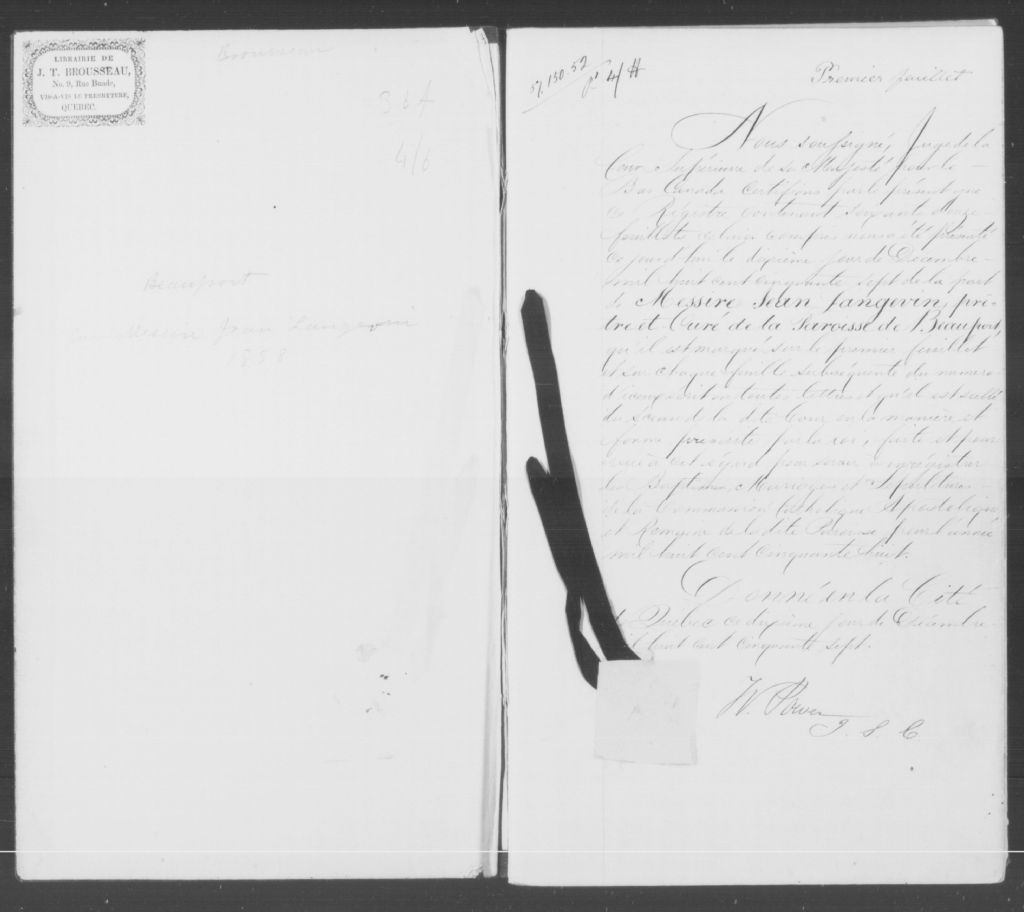 LIBRAIRIE DE
J. T. BROUSSEAU,
No. 9, Rue Buade,
VIS-À-VIS LE PRESBYTERE,
QUEBEC.
Brousseau
4/6
Beauport
Messire Jean Langevin
1858
57.150.52
4 #
Premier feuillet
Nous soussigné, Juge de la
Cour Supérieure de Sa Majesté pour le
Bas Canada certifions par le présent que
ce Régistre contenant soixante
feuillets celui-ci compris nous a été présenté
ce jourd'hui le dixième jour de Décembre
mil huit cent cinquante sept de la part
de Messire Jean Langevin, prê-
tre et Curé de la Paroisse de Beauport,
qu'il est marqué sur le premier feuillet
et sur chaque feuille subséquente du numero
d'iceux écrit en toutes lettres et qu'il est scellé
du Sceau de la dite Cour en la manière et
forme prescrite par la loi, faite et pour
vue à cet égard pour servir à enrégistrer
les Baptêmes, Mariages et Sépultures
de la Communion Catholique Apostolique
et Romaine de la dite Paroisse pour l'année
mil huit cent cinquante huit.
Donné en la Cité
de Québec ce dixième jour de Décembre
mil huit cent cinquante sept.
W. Power
J. S. C.